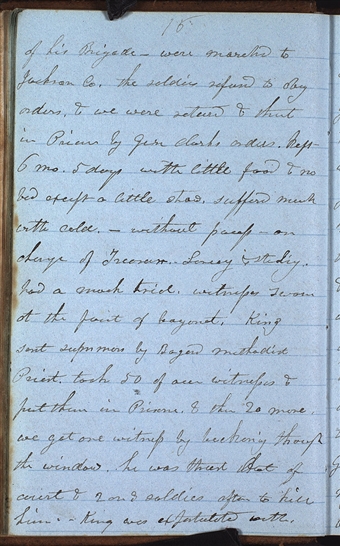 15
of his Brigade - were marched to
Jackson Co. the soldies refused to obey
orders, & we were retured & thrust
in Prison by Gen Clarks orders. Kept
6 mo. 5 days with little food & no
bed except a little straw. sufferd much
with cold. - without process - on
charge of Treason.
had a mock trial. witnesses sworn
at the point of bayonet. King
sent summons by Bogard methodist
Priest. took 50 of our witnesses &
put them in Prison. & then 20 more.
we got one witness by beckoning through
the window. he was thrust out of
court & 2 or 3 soldies after to kill
him. - King was expostulated with.